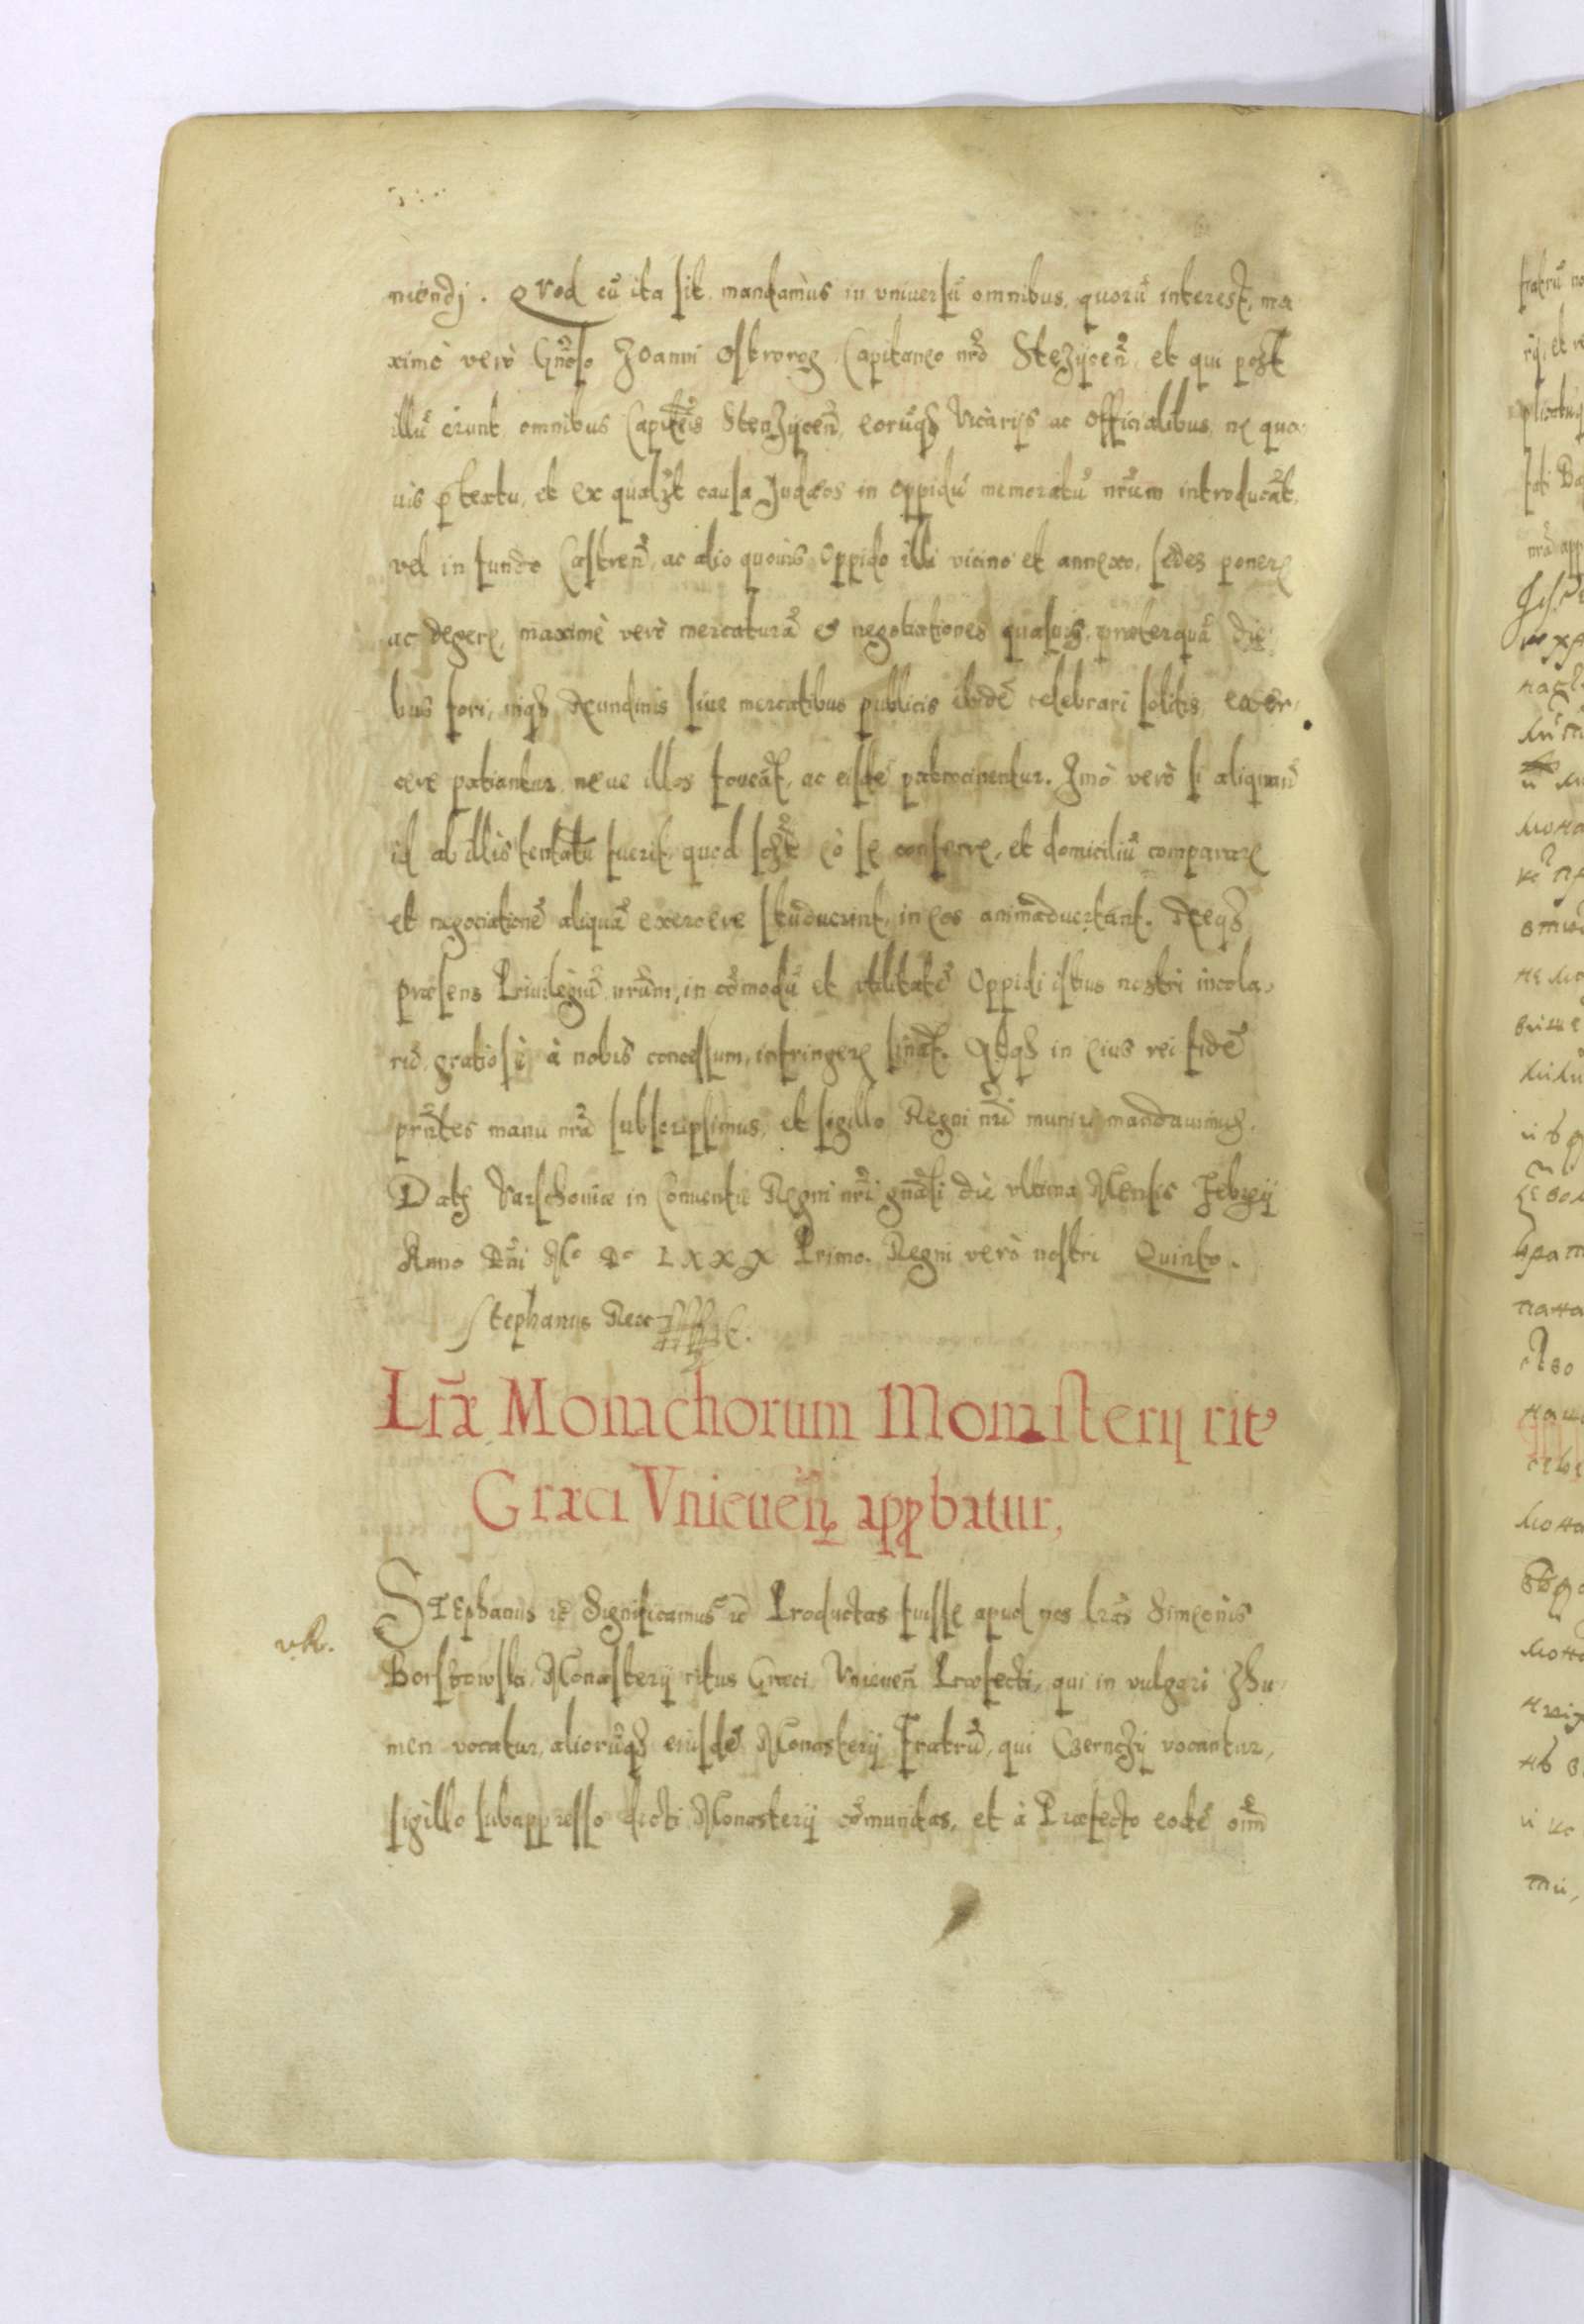 mendj. Qvod cũ ita sit mandamus in vniversũ omnibus, quorũ interest, ma
ximè verò Gnõso Joanni Ostrorog Capitaneo nrõ Stezijcen̄, et qui post
illũ erunt omnibus Capit̃eis Stenzijcen̄, eorũq₃ Vicarijs ac officialibus, ne qua
uis p̱textu, et ex qualj̃t causa Judæos in oppidũ memoratũ nrũm introducãt,
vel in fundo Castren̄, ac alio quouis Oppido illi vicino et annexo, sedes ponere
ac degere, maximè verò mercaturã & negotiationes quasuis, præterquã die
bus fori, inq₃ Nundinis siue mercatibus publicis ibidẽ celebrari solitis, exer,
cere patiantur, neue illos foueãt, ac eisdẽ patrocinentur. Imò verò si aliquand̃
id ab illis tentatũ fuerit, quod sc₃t eò se conferre, et domiciliũ comparare
et negociationẽ aliquã exercere studuerint, in eos animaduertant. Neq₃
præsens Priuilegiũ nrũm, in cõmodũ et vtilitatẽ Oppidi istius nostri incola,
rũ, gratiosè à nobis concessum, infringere sinãt. Qb̃q₃ in eius rei fidẽ
prñtes manu nrã subscripsimus, et sigillo Regni nrĩ muniri mandauimus.
Dat₃ Varschouiæ in Conuentu Regni nrĩ gñali die vltima Mensis Febrij
Anno Dñi Mᵒ Dᵒ LXXX Primo. Regni verò nostri Quinto.
Stephanus Rex sssst.
Lr̃æ Monachorum Monasterij ritꝰ
Græci Vnieuen̄ app̱batur,
Stephanus rc̃ Significamus rc̃ Productas fuisse apud nos lrãs Simeonis
v.R.
Borstrowski, Monasterij ritus Græci Vnieuen̄ Præfecti, qui in vulgari Jhu,
men vocatur, aliorũq₃ eiusdẽ Monasterij Fratrũ, qui Czernczij vocantur,
sigillo subappresso dicti Monasterij cõmunitas, et à Præfecto eodẽ